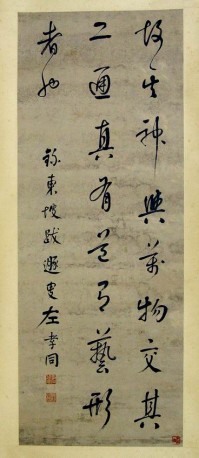 故其神與萬物交其
工通真有道有藝形
者也
錄東坡跋遯叟左孝同